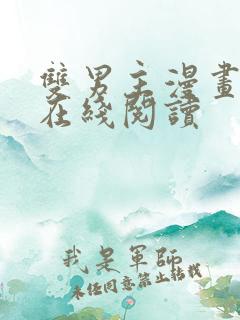 雙男主漫畫
在綫閱讀
我是軍師
未經同意禁止轉載